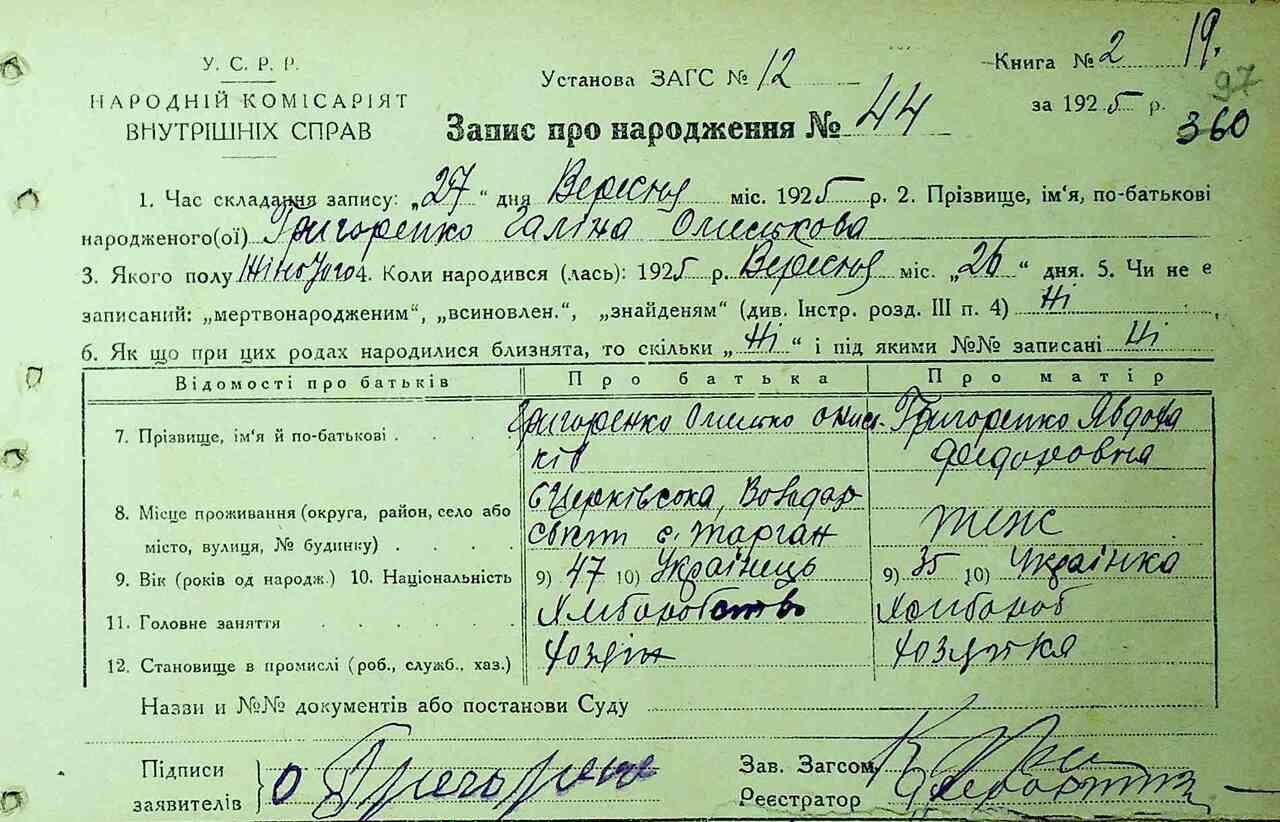 У. С. Р. Р.
НАРОДНІЙ КОМІСАРІЯТ
ВНУТРІШНІХ СПРАВ
Установа ЗАГС № 12
Книга № 2 19.
за 1925 р. 97
360
Запис про народження № 44
1. Час складання запису: „27“ дня Вересня міс. 1925 р. 2. Прізвище, ім'я, по-батькові
народженого(ої) Григоренко Галіна Олиськова
3. Якого полу Жіночого 4. Коли народився (лась): 1925 р. Вересня міс. „26“ дня. 5. Чи не є
записаний: „мертвонародженим“, „всиновлен.“, „знайденям“ (див. Інстр. розд. III п. 4) Ні
6. Як що при цих родах народилися близнята, то скільки „Ні“ і під якими №№ записані Ні
Відомості про батьків Про батька Про матір
7. Прізвище, ім'я й по-батькові Григоренко Олисько Онись- Григоренко Явдоха
ків Федоровна
8. Місце проживання (округа, район, село або БЦерківська, Володар
місто, вулиця, № будинку) с. Тарган теж
9. Вік (років од народж.) 10. Національність 9) 47 10) Українець 9) 35 10) Українка
11. Головне заняття Хліборобство Хлібороб
12. Становище в промислі (роб., служб., хаз.) Хозяін Хозяйка
Назви и №№ документів або постанови Суду
Підписи
заявителів О Григорен
Зав. Загсом
Реєстратор